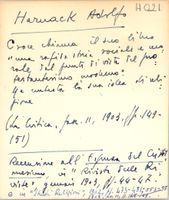 H Q 21
Harnack Adolfo
Croce chiama il suo libro
"una rapida storia sociale e mo-
rale dal punto di vista del pro-
testantesimo moderno".
Ya contesta la sua idea di reli-
gione
(La Critica, fasc. II, 1903, pp. 149-
151)
Recensione all' Essenza del Cristia-
nesimo, in "Rivista delle Ri-
viste" gennaio 1903, pp. 44-47.
e in "Studi Religiosi"